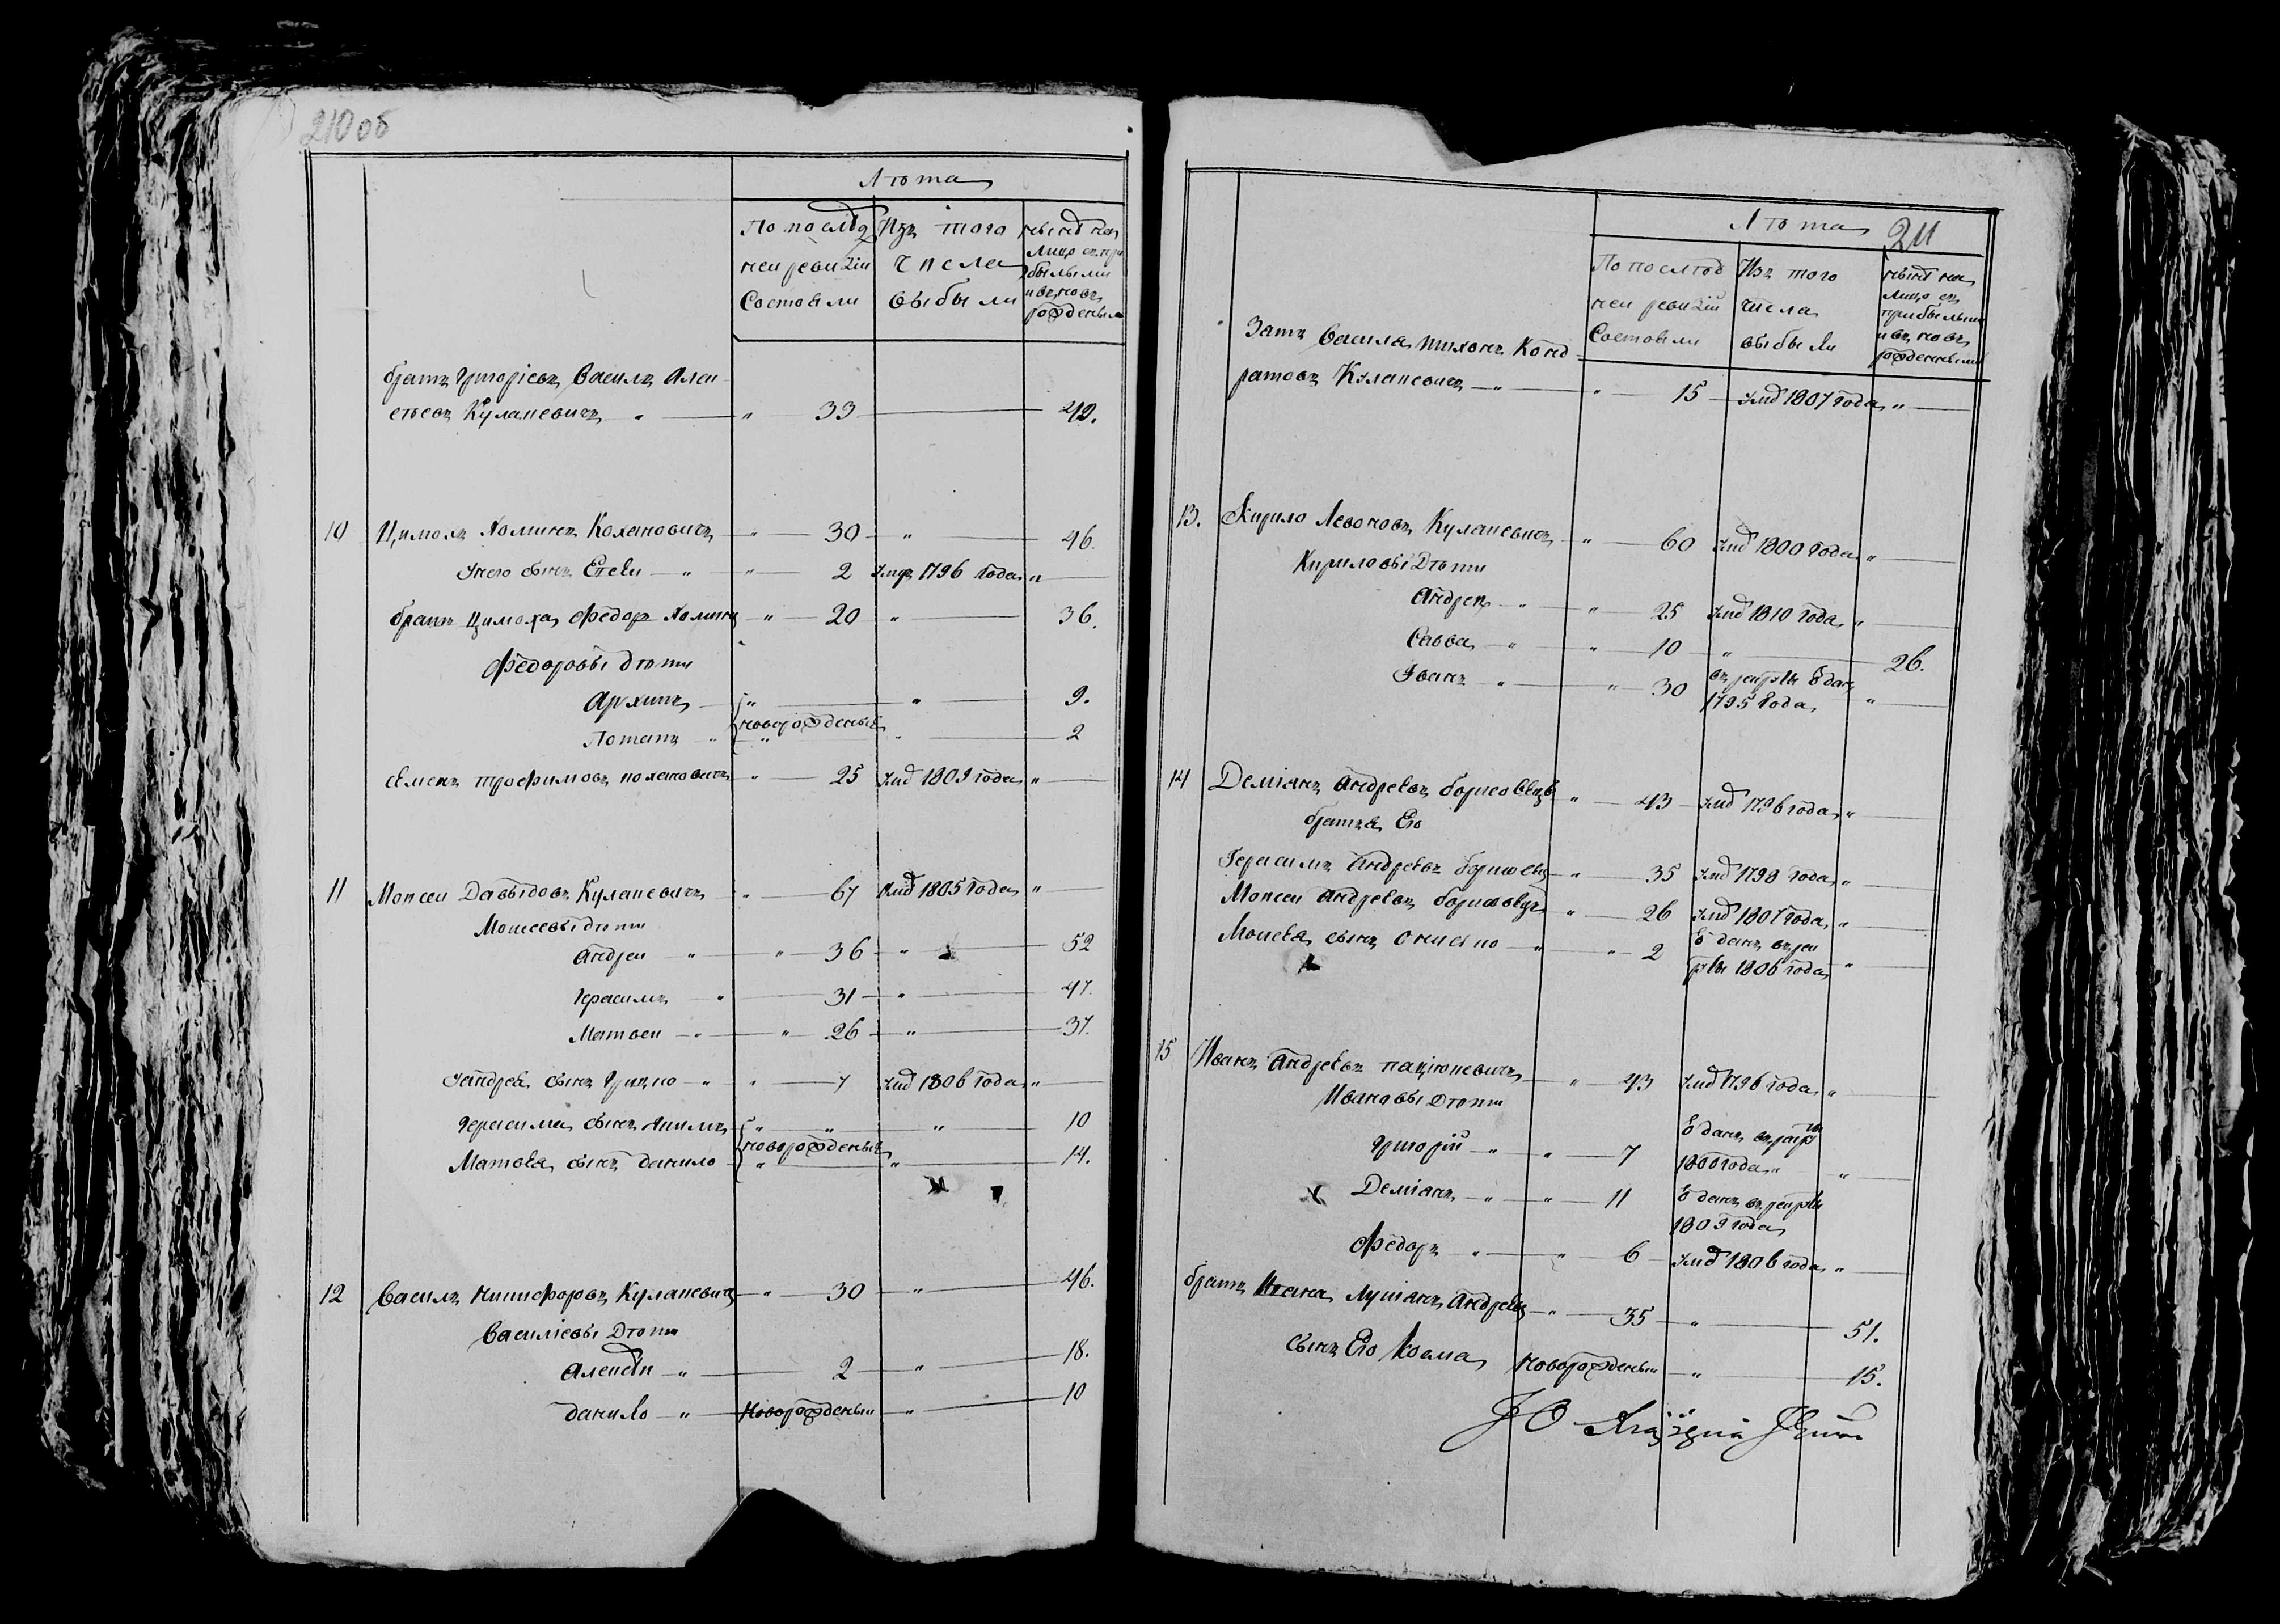 210 об
Лѣта
По послѣд Изъ того нынѣ на
ней ревизіи числа лицо съ при
Состояли выбыли былыми
и въ новь
рожденым
братъ Григоріевъ Василъ Алек
сѣевъ Кулакевичъ " — " 33 — 49.
10 Цимохъ Хоминъ Кохановичъ " — 30 — " — 46.
У него сынъ Есеви — " " — 2 умр 1796 года "
братъ Цимоха Федоръ Хоминъ " — 20 — " — 36.
Федоровы дѣти
Архипъ — " — " — 9.
новорожденые
Потапъ " — " — 2
Семенъ Трофимовъ Кохановичъ " — 25 умр 1809 года "
11 Моисеи Давыдовъ Кулакевичъ " — 67 умр 1805 года "
Моисеевы дѣти
Андреи " — " — 36 — " — 52
Герасимъ " — 31 — " — 47.
Матвеи — " — " — 26 — " — 37.
У Андрея сынъ Грицко — " " — 7 умр 1806 года "
Герасима сынъ Якимъ " — " — " — 10
новорожденые
Матвея сынъ Данило " — " — 14.
12 Василъ Никифоровъ Кулакевичъ — " — 30 — " — 46.
Василіевы Дѣти
Алексѣи — " — 2 — " — 18.
Данило — " — Новорожденыи — " — 10
Лѣта 211
По послѣд Изъ того нынѣ на
ней ревизіи числа лицо съ
Состояли выбыли прибылыми
и въ новь
рожденными
Зять Василя Тихонъ Конд
ратовъ Кулакевичъ — " — " — 15 — умр 1807 года "
13. Кирило Левоновъ Кулакевичъ " — 60 умр 1800 года "
Кириловы Дѣти
Андреи — " — " — 25 умр 1810 года "
Савва — " — " — 10 — " — 26.
Иванъ — " — " — 30 въ рекруты Отданъ
1795 года "
14 Деміанъ Андреевъ Борисовецъ " — 43 — умр 1796 года "
братъя Его
Герасимъ Андреевъ Борисовец — " — 35 умр 1798 года "
Моисеи Андреевъ Борисовецъ — " — 26 умр 1807 года "
Моисея сынъ Онисько — " — " — 2 Отданъ въ рек
руты 1806 года "
15 Иванъ Андреевъ Пацюкевичъ — " — 43 умр 1796 года "
Ивановы Дѣти
Григорій — " — " — 7 Отданъ въ рекр
1800 года " "
Деміанъ — " — " — 11 Отданъ въ рекруты
1809 года
Федоръ " — " — 6 — умр 1806 года "
братъ Ивана Лукіанъ Андреевъ — " — 35 — " — 51.
Сынъ Его Козма Новорожденыи — " — 15.